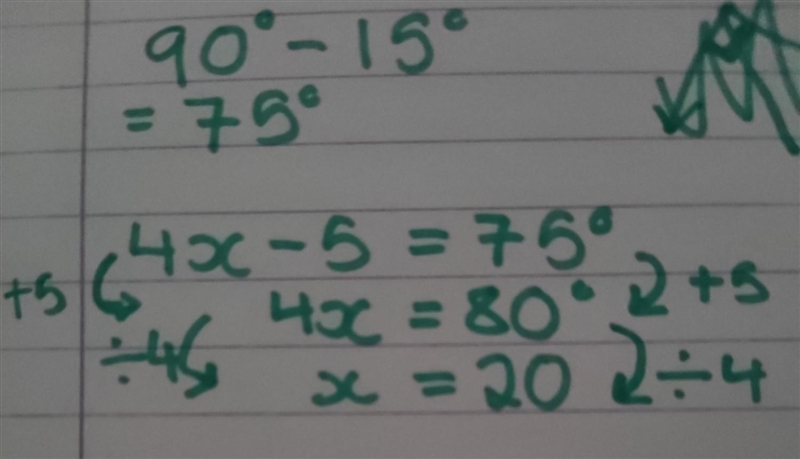 90° - 15°
= 75°
4x - 5 = 75°
+5 4x = 80° +5
÷4 x = 20 ÷4